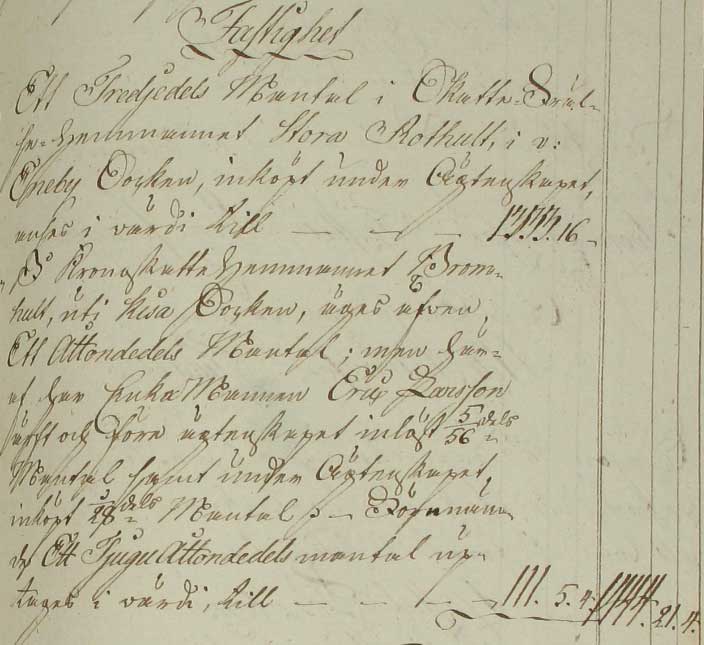 Fastighet
Ett Tredjedels Mantal i Skatte-Fräl-
se-Hemmannet Stora Rothult, i v:
Eneby Socken, inköpt under Ägtenskapet,
anses i värdi till — — — 1333. 16 –
I Kronoskatte Hemmannet Brom-
hult, uti Kisa Socken, äges äfven,
Ett Attondedels Mantal; men här-
af har Enke Mannen Eric Larsson
ärft och före ägtenskapet inlöst 5/56 dels
Mantal samt under Ägtenskapet,
inköpt 1/28 dels Mantal
de Ett Tjugu Attondedels mantal up-
tages i värdi, till — — — — 111. 5. 4. 1444. 21. 4.